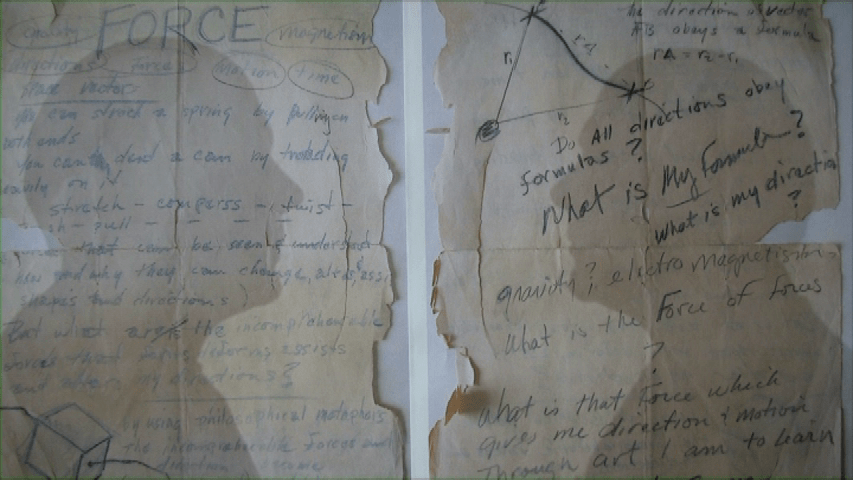 gravity FORCE magnetism
Directions Force Motion Time
space vector
you can stretch a spring by pulling on
both ends
you can dend a can by treading
on it
stretch - compress - twist -
- pull - - - -
that can be seen & understood
how and why they can change,
shapes and directions)
But what are the incomprehensible
forces that assists
and alters my directions?
by using philosophical metaphors
the incomprehensible Forces and
direction become
the direction of vector
AB obeys a formula
rΔ = r₂ - r₁
r₁
rΔ
r₂
Do All directions obey
formulas?
What is My formula?
What is my direction
?
gravity? electro magnetism,
What is the Force of forces
?
What is that Force which
gives me direction & motion
Through art I am to learn